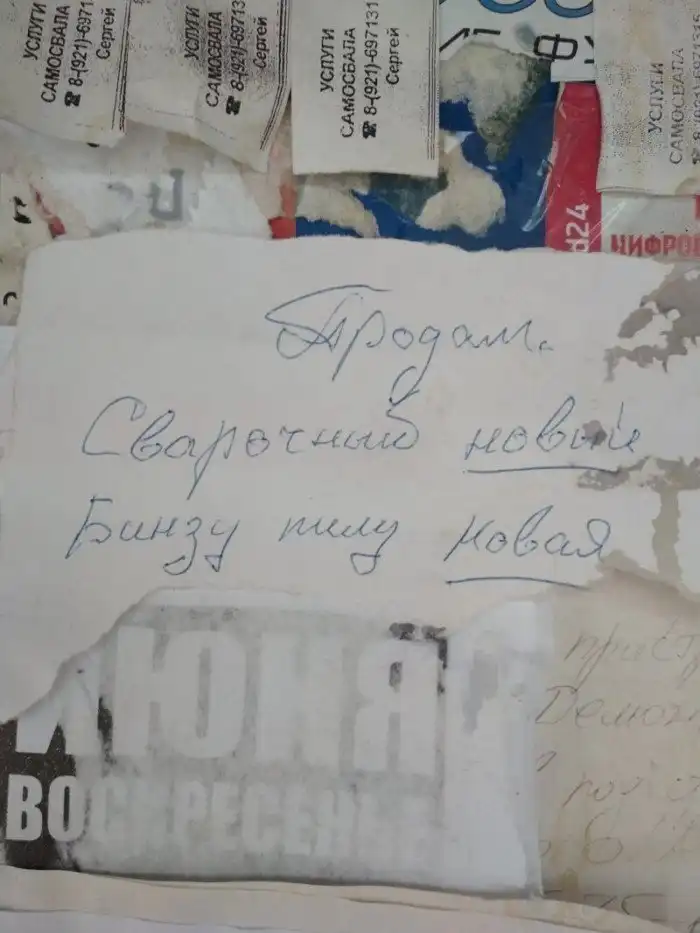 УСЛУГИ
САМОСВАЛА
☎ 8-(921)-6971
Сергей
УСЛУГИ
САМОСВАЛА
☎ 8-(921)-69713
Сергей
УСЛУГИ
САМОСВАЛА
☎ 8-(921)-697131
Сергей
УСЛУГИ
САМОСВАЛА
d24
ЦИФРОВ
Продам.
Сварочный новый
Бинзу пилу новая
ИЮНЯ
ВОСКРЕСЕНЬЕ